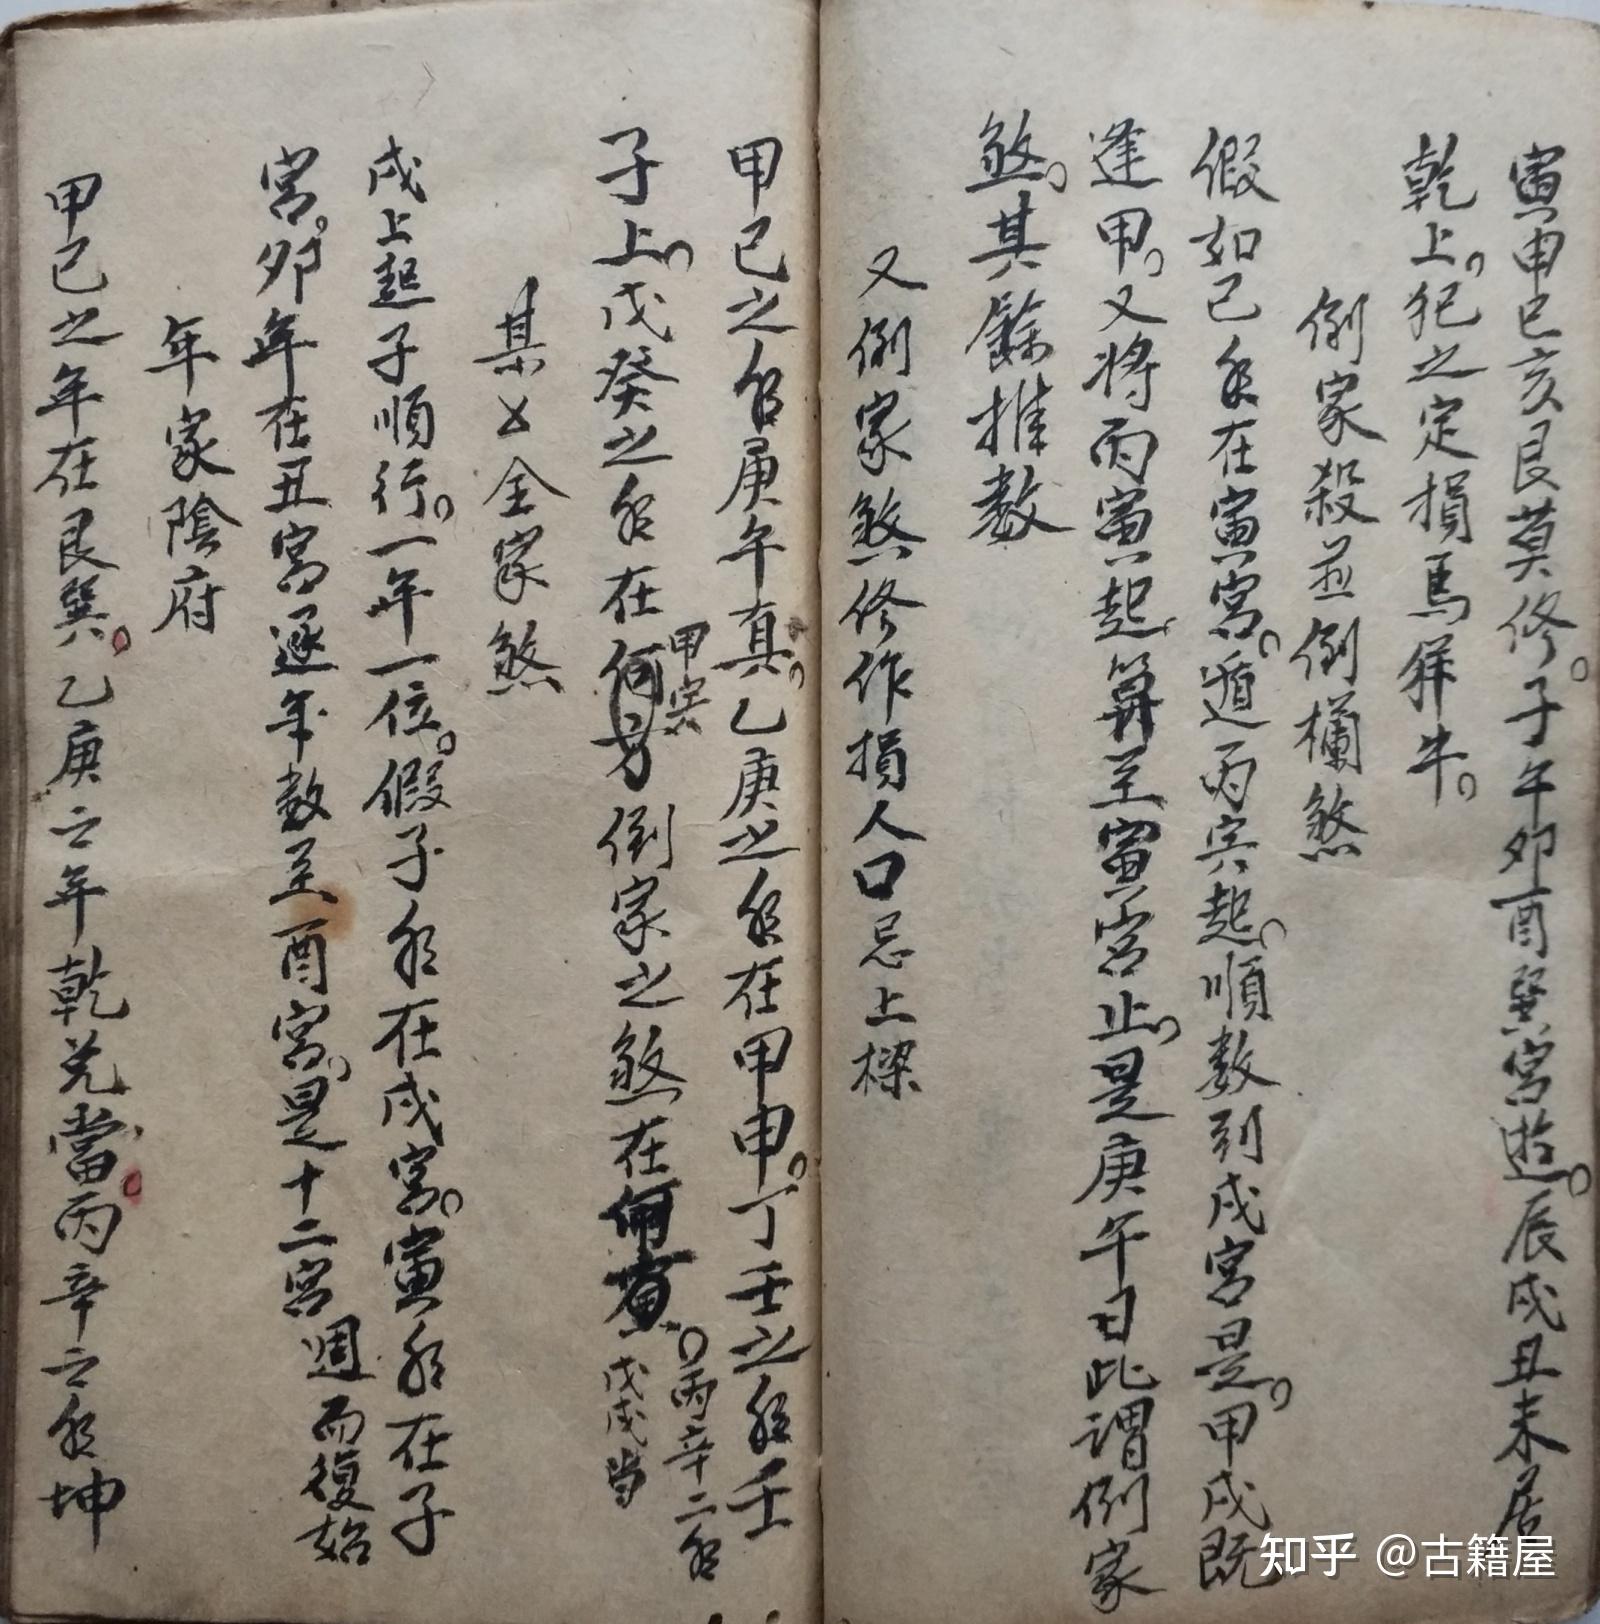 寅申巳亥艮莫修。子午卯酉巽宮遊。辰戌丑未居
乾上。犯之定損馬牂牛。
倒家殺並倒欄煞
假如己年在寅宮。遁丙寅起。順数到戌宮是。甲戌既
逢甲。又将丙寅起算至寅宮止。是庚午日此謂倒家
煞。其餘推数
又倒家煞修作損人口忌上樑
甲己之年庚午真。乙庚之年在甲申。丁壬之年壬
子上。戊癸之年在 倒家之煞在
甲寅
。丙辛二年
戊戌当
某公全家煞
戌上起子順行。一年一位。假子年在戌宮。寅年在子
宮。卯年在丑宮逐年数至酉宮。是十二宮週而復始
年家陰府
甲己之年在艮巽。乙庚之年乾兊當。丙辛之年坤
知乎 @古籍屋